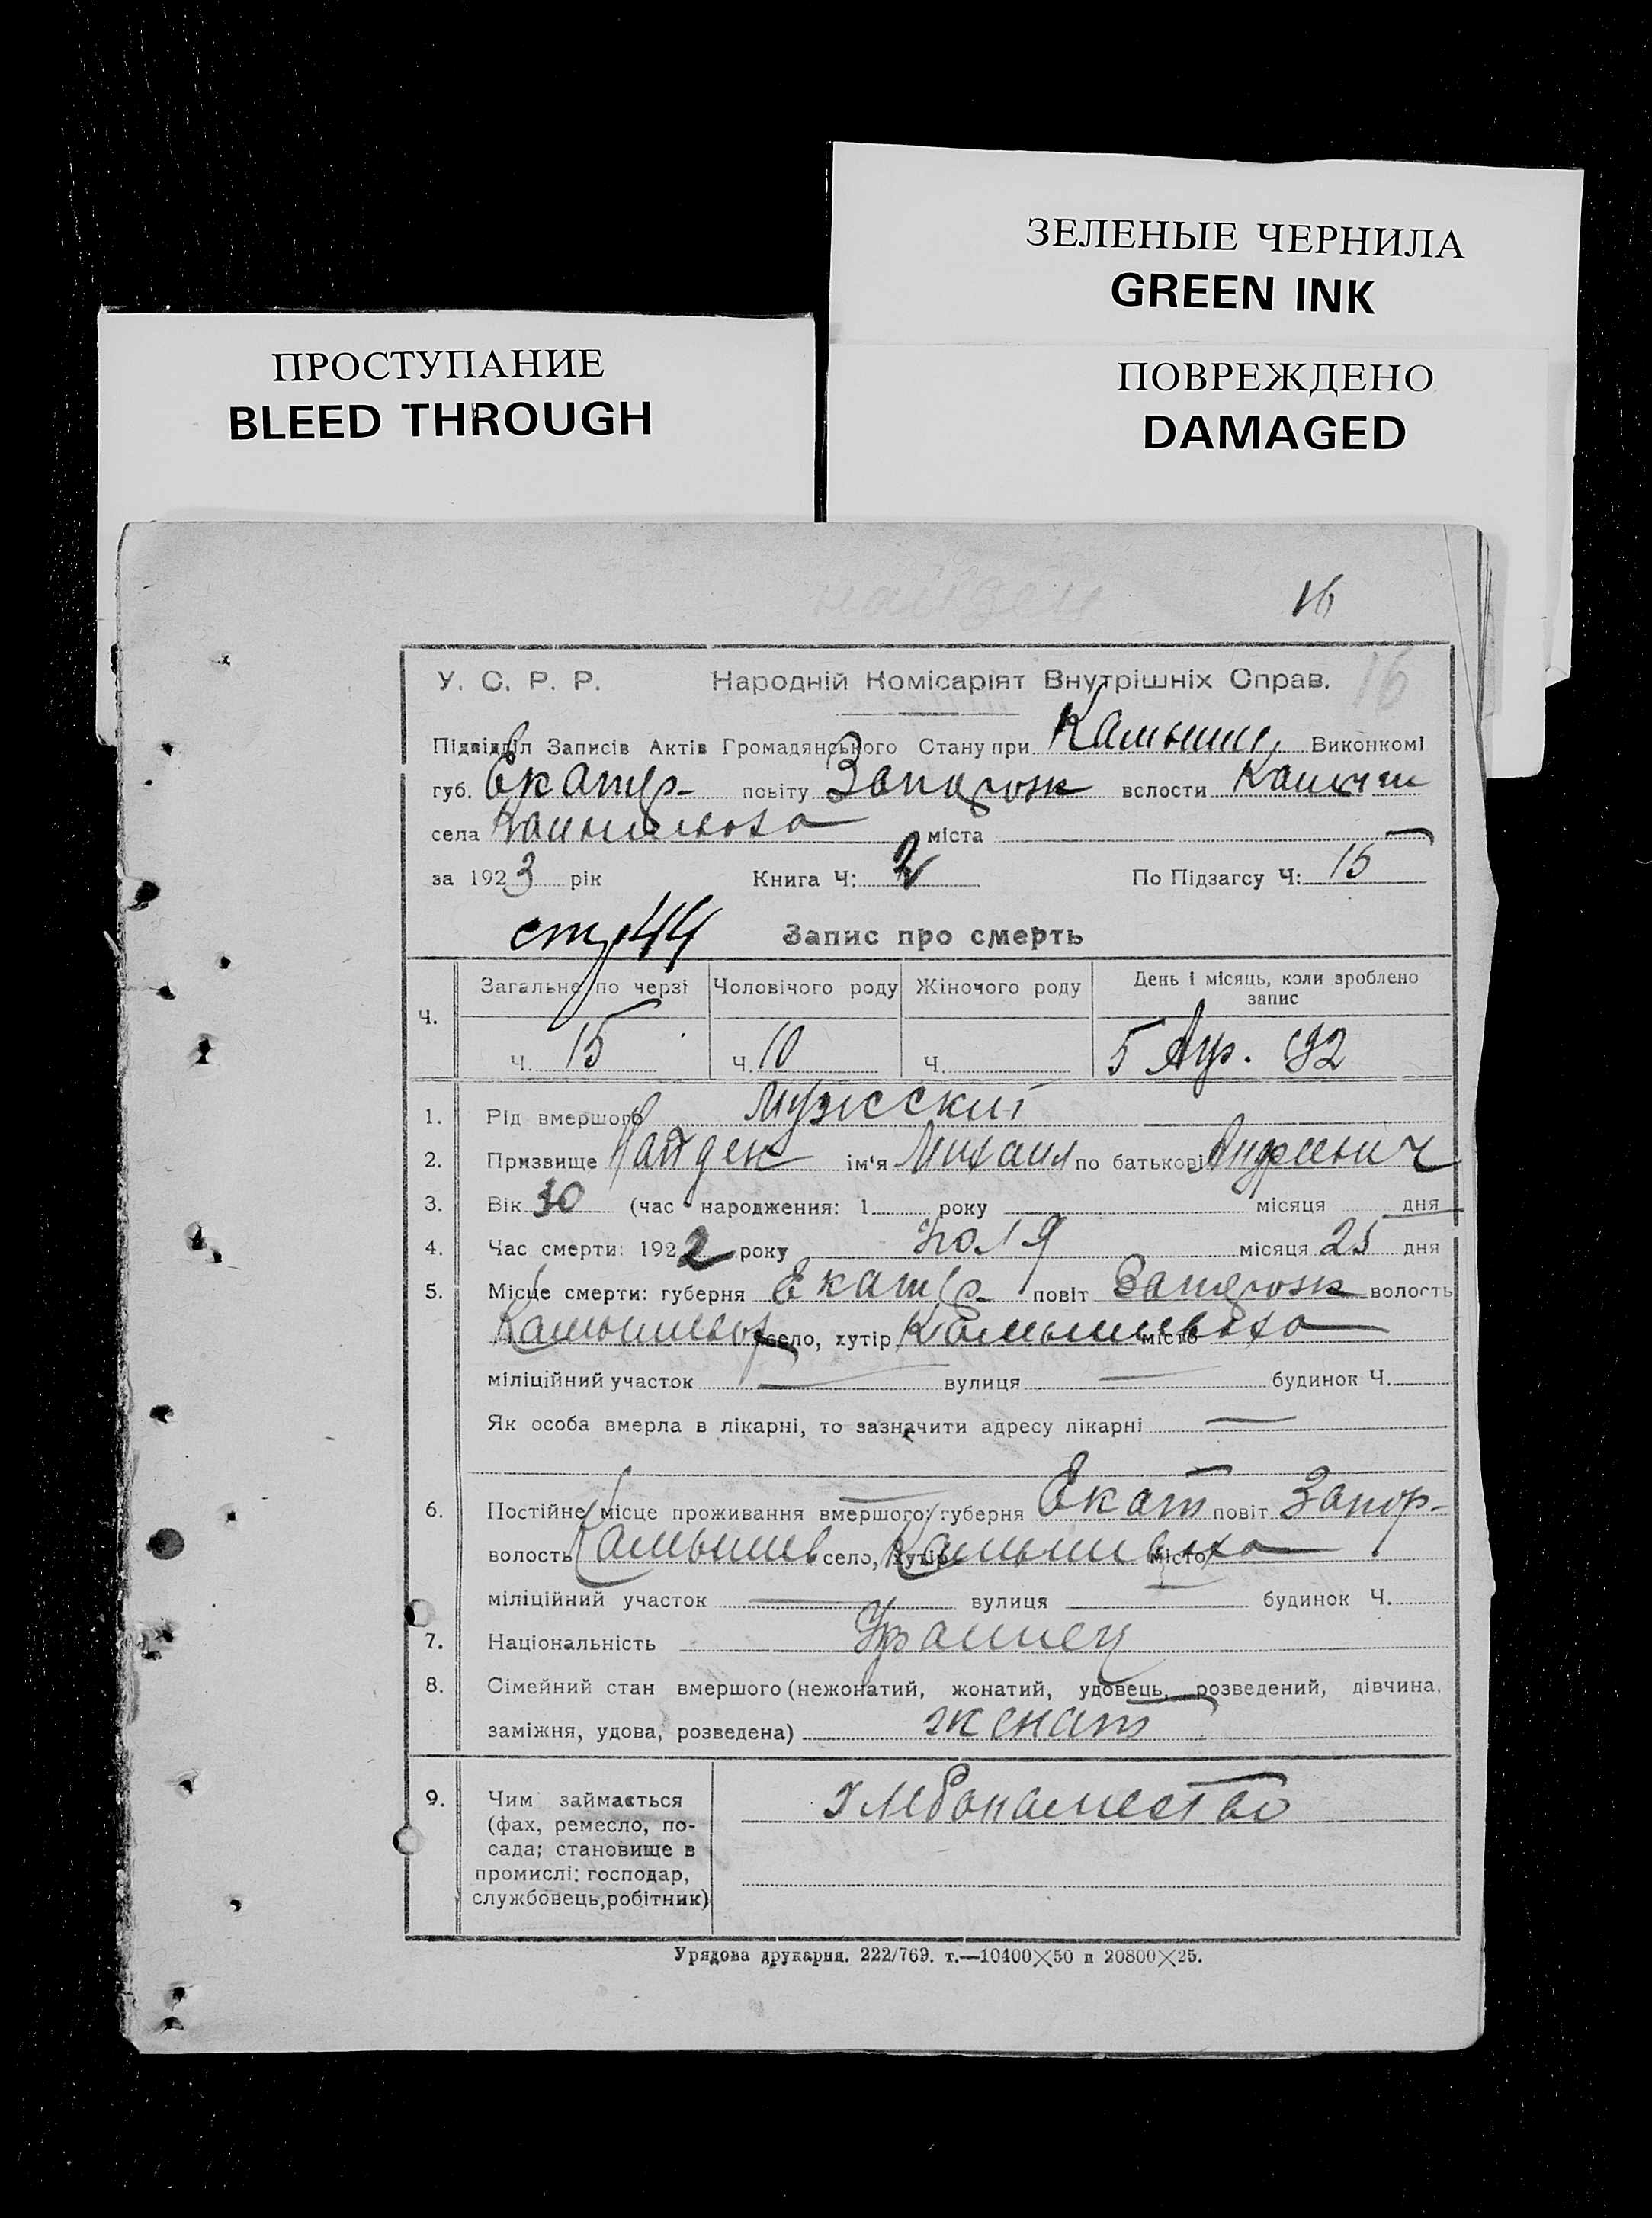 ЗЕЛЕНЫЕ ЧЕРНИЛА
GREEN INK
ПРОСТУПАНИЕ
BLEED THROUGH
ПОВРЕЖДЕНО
DAMAGED
найден
16
У. С. Р. Р. Народній Комісаріят Внутрішніх Справ. 16
Підвідділ Записів Актів Громадянського Стану при Камышш. Виконкомі
губ. Екатер- повіту Запорож вслости Камыш
села Камышеваха міста
за 1923 рік Книга Ч: 2 По Підзагсу Ч: 15
стр 44 Запис про смерть
Ч. Загальне по черзі Чоловічого роду Жіночого роду День і місяць, коли зроблено запис
Ч. 15 Ч. 10 Ч. 5 192
1. Рід вмершого мужский
2. Призвище Найден ім'я Михаил по батькові Андреевич
3. Вік 30 (час народження: 1 року місяця дня
4. Час смерти: 1922 року июля місяця 25 дня
5. Місце смерти: губерня Екатер- повіт Запорож волость
Камышевах село, хутір Камышеваха місто
міліційний участок вулиця будинок Ч.
Як особа вмерла в лікарні, то зазначити адресу лікарні
6. Постійне місце проживання вмершого: губерня Екат повіт Запор-
волость Камышев село, хутір Камышеваха місто
міліційний участок вулиця будинок Ч.
7. Національність
8. Сімейний стан вмершого (нежонатий, жонатий, удовець, розведений, дівчина,
заміжня, удова, розведена) женат
9. Чим займається хлебопашество
(фах, ремесло, по-
сада; становище в
промислі: господар,
службовець, робітник)
Урядова друкарня. 222/769. т.—10400×50 и 20800×25.